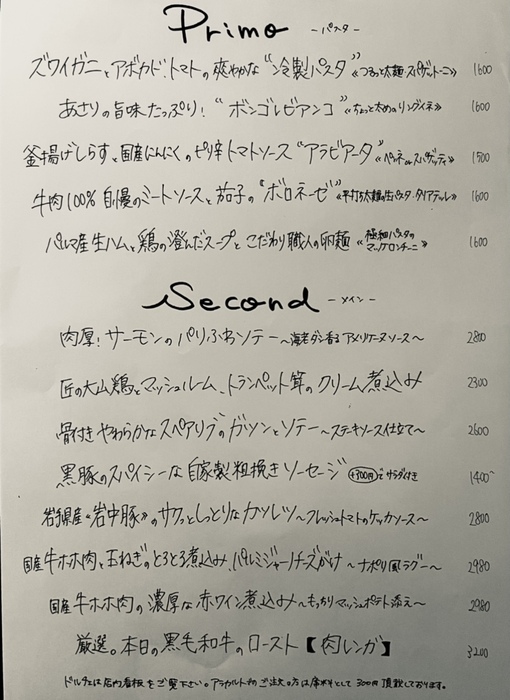 Primo -パスタ-
ズワイガニとアボカド、トマトの爽やかな“冷製パスタ” 《つるっと太麺・スパゲットーニ》 1600
あさりの旨味たっぷり！ “ボンゴレビアンコ” 《ちょっと太めなリングイネ》 1600
釜揚げしらすと国産にんにくのピリ辛トマトソース“アラビアータ” 《ペンネorスパゲッティ》 1500
牛肉100%自慢のミートソースと茄子の“ボロネーゼ” 《平打ち太麺の生パスタ・タリアテッレ》 1600
パルマ産生ハムと鶏の澄んだスープとこだわり職人の卵麺 《極細パスタのマッケロンチーニ》 1600
Second -メイン-
肉厚！サーモンのパリふわソテー〜海老ダシ香るアメリケーヌソース〜 2800
匠の大山鶏とマッシュルーム、トランペット茸のクリーム煮込み 2300
骨付きやわらかなスペアリブのガツンとソテー〜ステーキソース仕立て〜 2600
黒豚のスパイシーな自家製粗挽きソーセージ +300円でサラダ付き 1400~
岩手県産“岩中豚”のサクッとしっとりなカツレツ〜フレッシュトマトのケッカソース〜 2800
国産牛ホホ肉と玉ねぎのとろとろ煮込み、パルミジャーノチーズがけ〜ナポリ風ラグー〜 2980
国産牛ホホ肉の濃厚な赤ワイン煮込み〜もっちりマッシュポテト添え〜 2980
厳選。本日の黒毛和牛のロースト【肉レンガ】 3200
ドルチェは店内看板をご覧下さい。アラカルトのみのご注文の方は席料として300円頂戴しております。